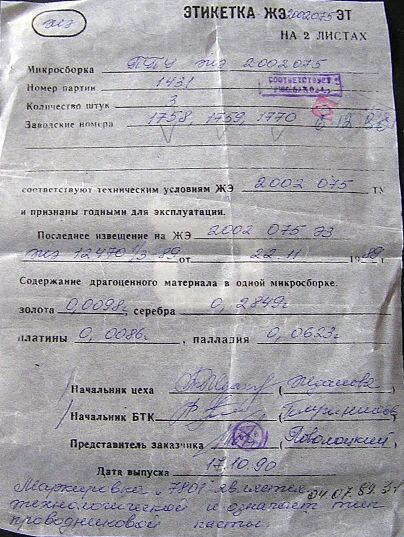 ЖЭ
ЭТИКЕТКА ЖЭ 2002075 ЭТ
НА 2 ЛИСТАХ
Микросборка ППУ ЖЭ 2002075
Номер партии 1431
СООТВЕТСТВУЕТ
Количество штук 3
Заводские номера 1758, 1759, 1770
соответствуют техническим условиям ЖЭ 2002 075 ТУ
и признаны годными для эксплуатации.
Последнее извещение на ЖЭ 2002 075 ЭЗ
ЖЭ 12470 1/3-89 от 22.11 1989г
Содержание драгоценного материала в одной микросборке.
золота 0,0098г серебра 0,2849г
платины 0,0086г, палладия 0,0623г
Начальник цеха
Начальник БТК
Представитель заказчика Поволоцкий
Дата выпуска 17.10.90
Маркировка "7801" является
технологической и означает тип
проводниковой пасты.